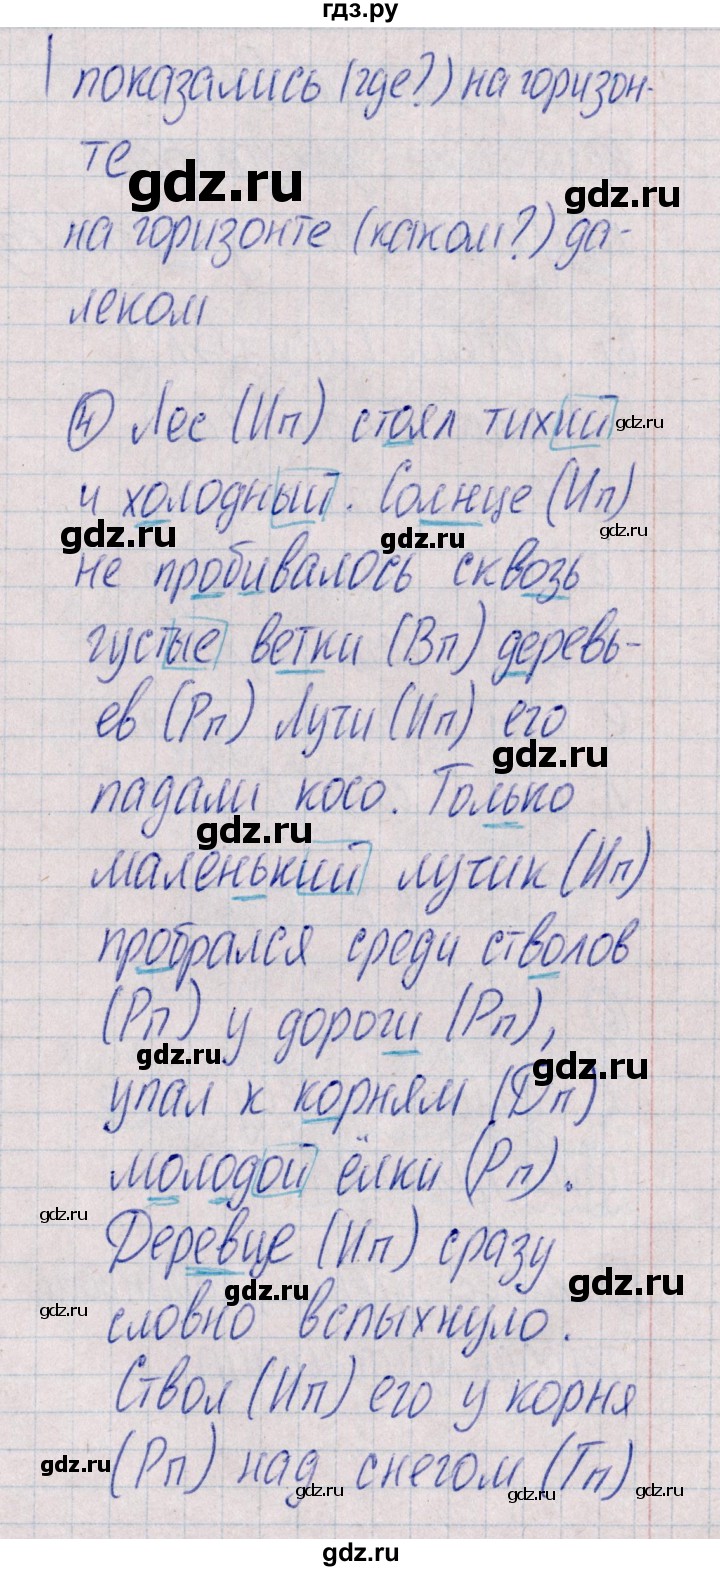 гдз.ру
показались (где?) на горизон-
те
gdz.ru
gdz.ru
на горизонте (каком?) да-
леком
④ Лес (Ип) стоял тихий
gdz.ru
и холодный. Солнце (Ип)
gdz.ru
gdz.ru
gdz.ru
не пробивалось сквозь
густые ветки (Вп) деревь-
ев (Рп) Лучи (Ип) его
gdz.ru
падали косо. Только
gdz.ru
маленький лучик (Ип)
пробрался среди стволов
(Рп) у дороги (Рп),
gdz.ru
gdz.ru
упал к корням (Дп)
молодой ёлки (Рп).
gdz.ru
Деревце (Ип) сразу
gdz.ru
gdz.ru
gdz.ru
словно вспыхнуло.
Ствол (Ип) его у корня
(Рп) над снегом (Тп)
gdz.ru
gdz.ru
gdz.ru
gdz.ru
gdz.ru